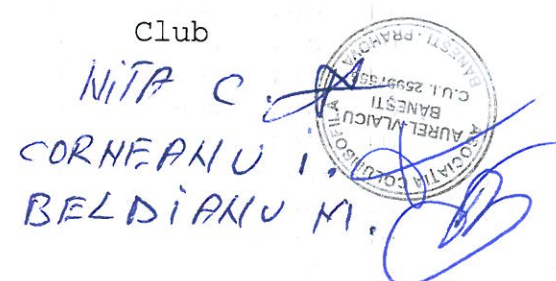 Club
NiTA C.
CORNEANU i.
BELDiANU M.
ASOCIAŢIA COLUMBOFILĂ
AUREL VLAICU
BĂNEŞTI
BĂNEŞTI - PRAHOVA